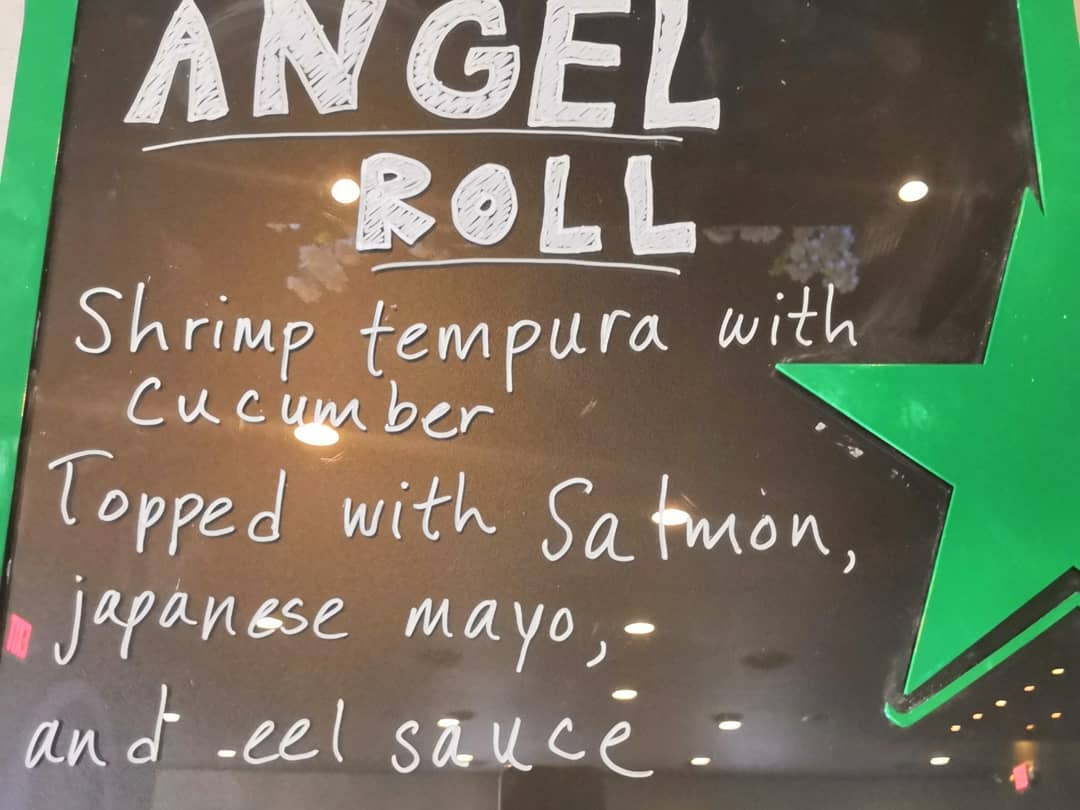 ANGEL
ROLL
Shrimp tempura with
cucumber
Topped with Salmon,
japanese mayo,
and eel sauce